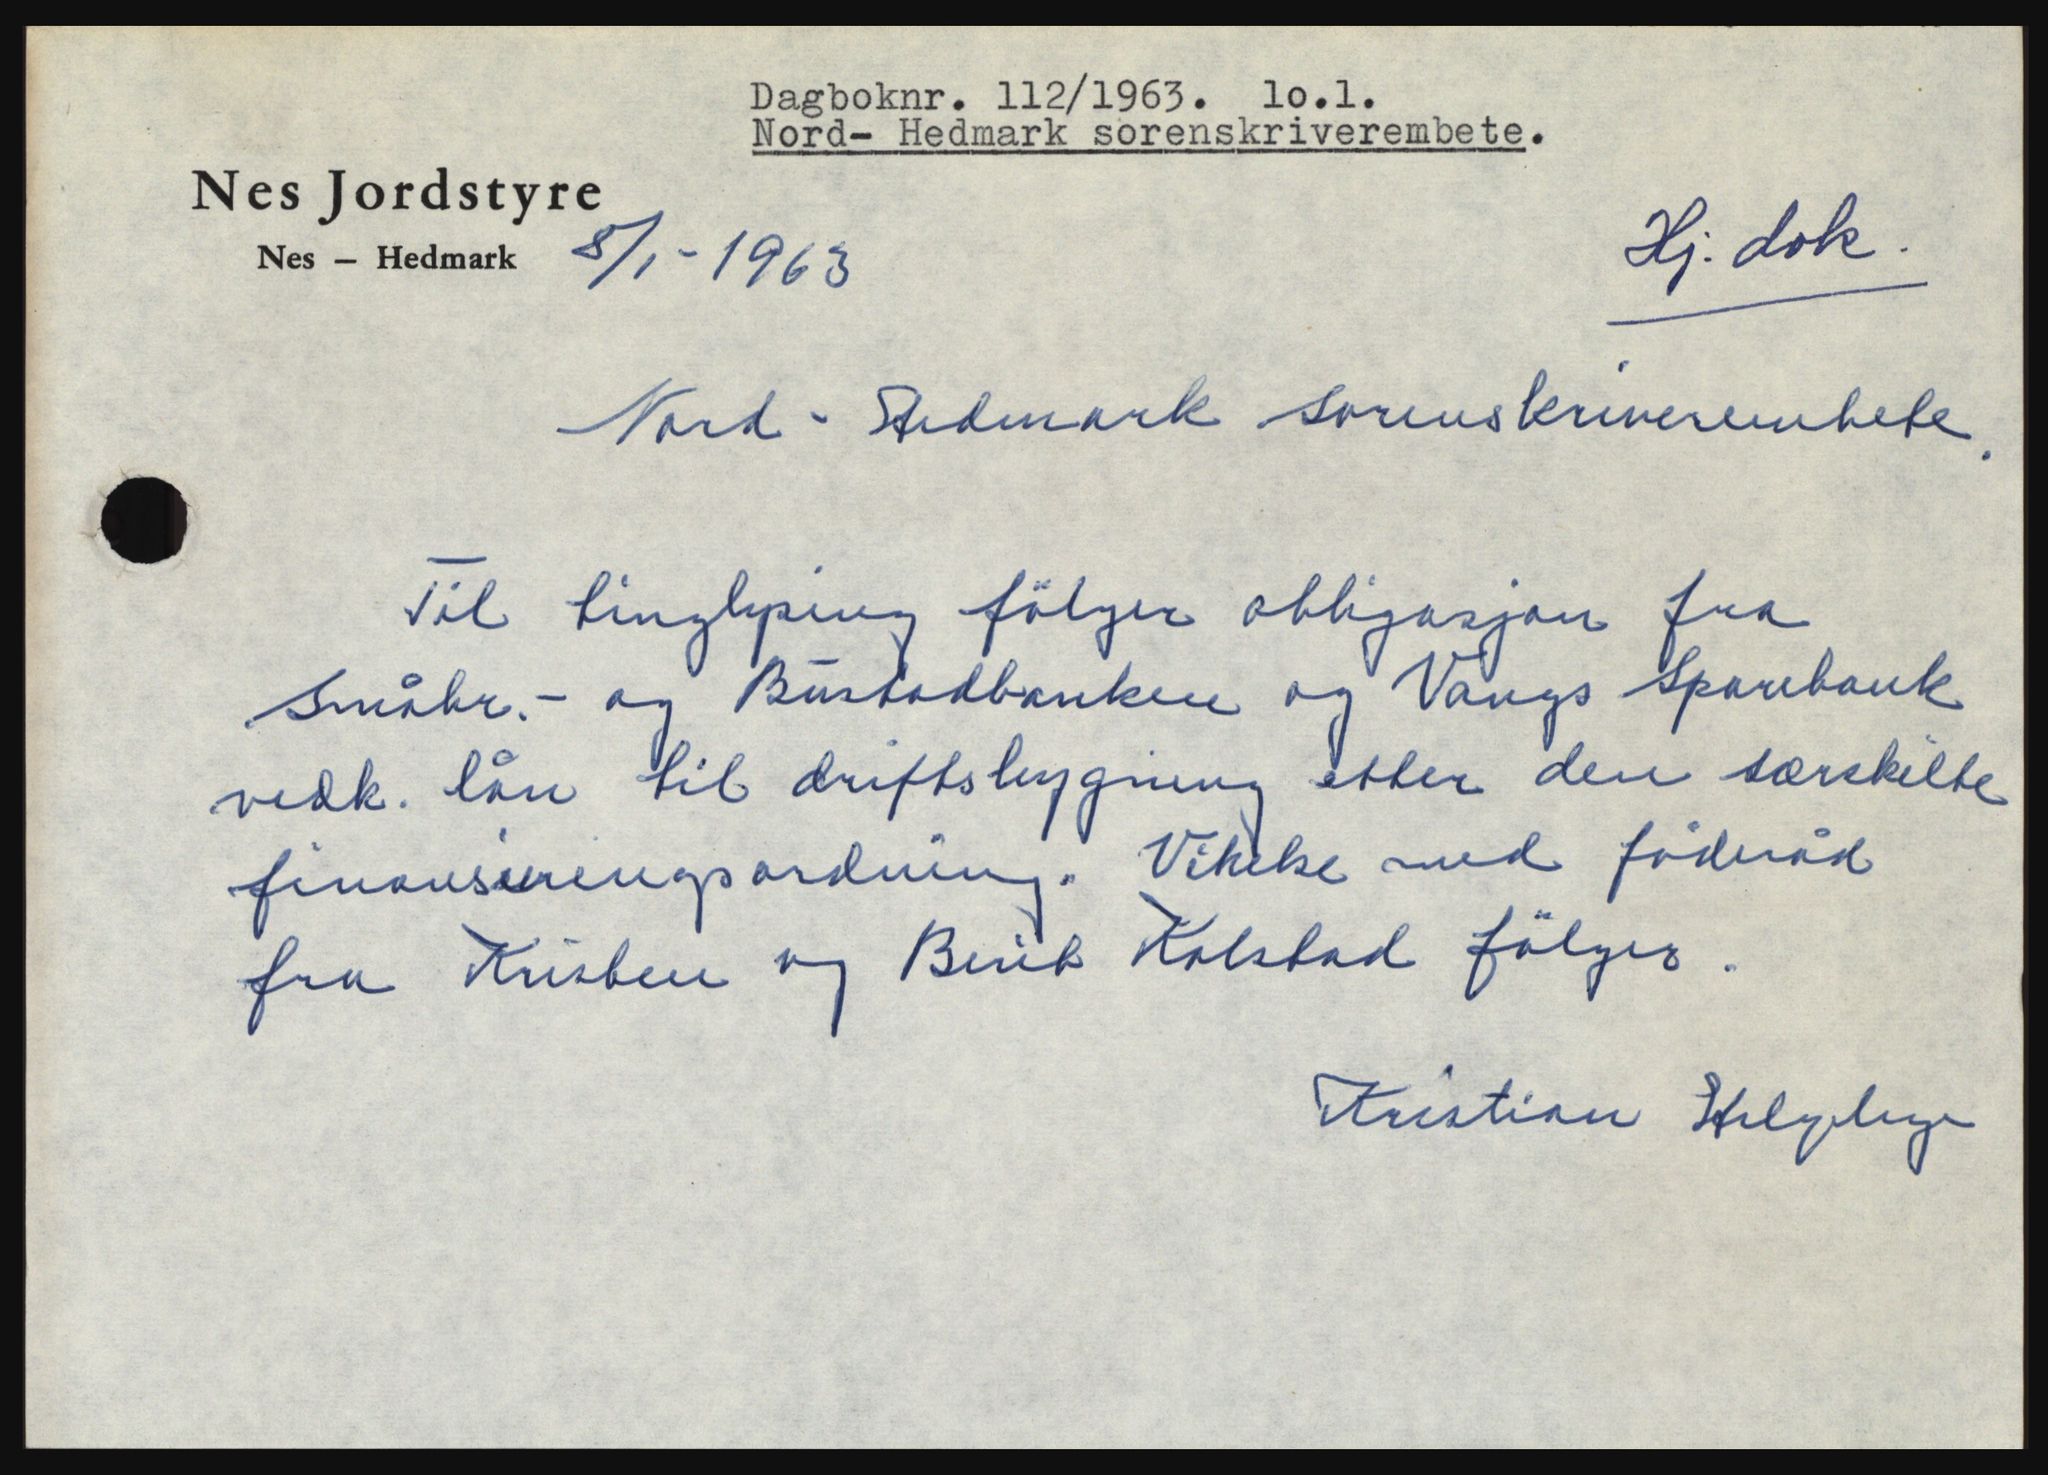 Dagboknr. 112/1963. 10.1.
Nord- Hedmark sorenskriverembete.
Nes Jordstyre
Nes – Hedmark 8/1-1963
Hj. dok.
Nord - Hedmark sorenskriverembete.
Til tinglysing følger obligasjon fra
Småbr.- og Bustadbanken og Vangs Sparebank
vedk. lån til driftsbygning etter den særskilte
finansieringsordning. Vikelse med föderåd
fra Kristen og Berit Kolstad følger.
Kristian Helgeby